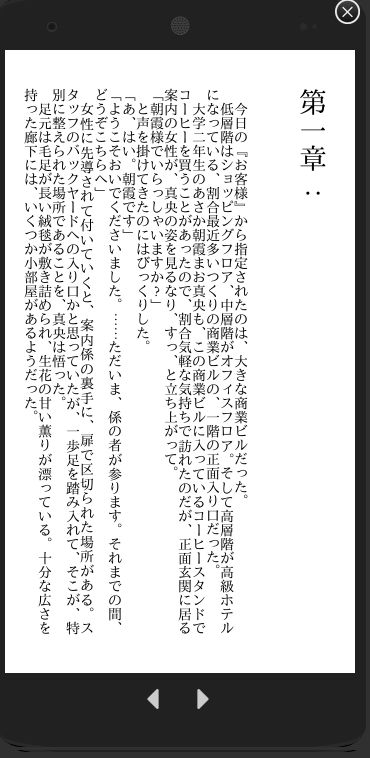 第一章：
今日の『お客様』から指定されたのは、大きな商業ビルだった。
低層階はショッピングフロア、中層階がオフィスフロア。そして高層階が高級ホテル
になっている、割合最近多いつくりの商業ビルの、一階の正面入り口だった。
大学二年生のあさか朝霞まお真央も、この商業ビルに入っているコーヒースタンドで
コーヒーを買うことがあったので、割合気軽な気持ちで訪れたのだが、正面玄関に居る
案内の女性が、真央の姿を見るなり、すっ、と立ち上がって。
「朝霞様でいらっしゃいますか？」
と声を掛けてきたのにはびっくりした。
「あ、はい。朝霞です」
「ようこそおいでくださいました。……ただいま、係の者が参ります。それまでの間、
どうぞこちらへ」
女性に先導されて付いていくと、案内係の裏手に、扉で区切られた場所がある。ス
タッフのバックヤードへの入り口かと思っていたが、一歩足を踏み入れて、そこが、特
別に整えられた場所であることを、真央は悟った。
足元は毛足が長い絨毯が敷き詰められ、生花の甘い薫りが漂っている。十分な広さを
持った廊下には、いくつか小部屋があるようだった。